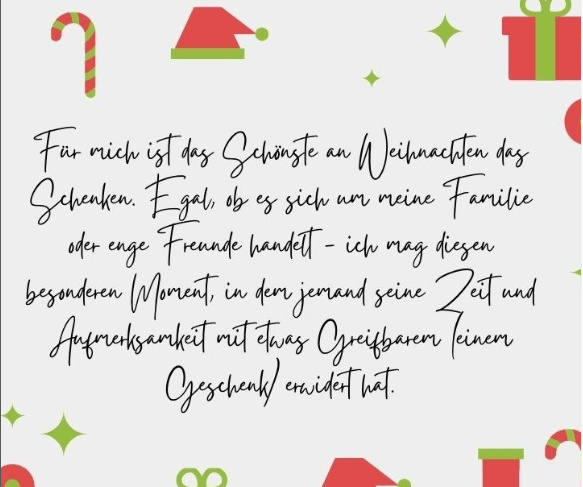 Für mich ist das Schönste an Weihnachten das
Schenken. Egal, ob es sich um meine Familie
oder enge Freunde handelt - ich mag diesen
besonderen Moment, in dem jemand seine Zeit und
Aufmerksamkeit mit etwas Greifbarem (einem
Geschenk) erwidert hat.